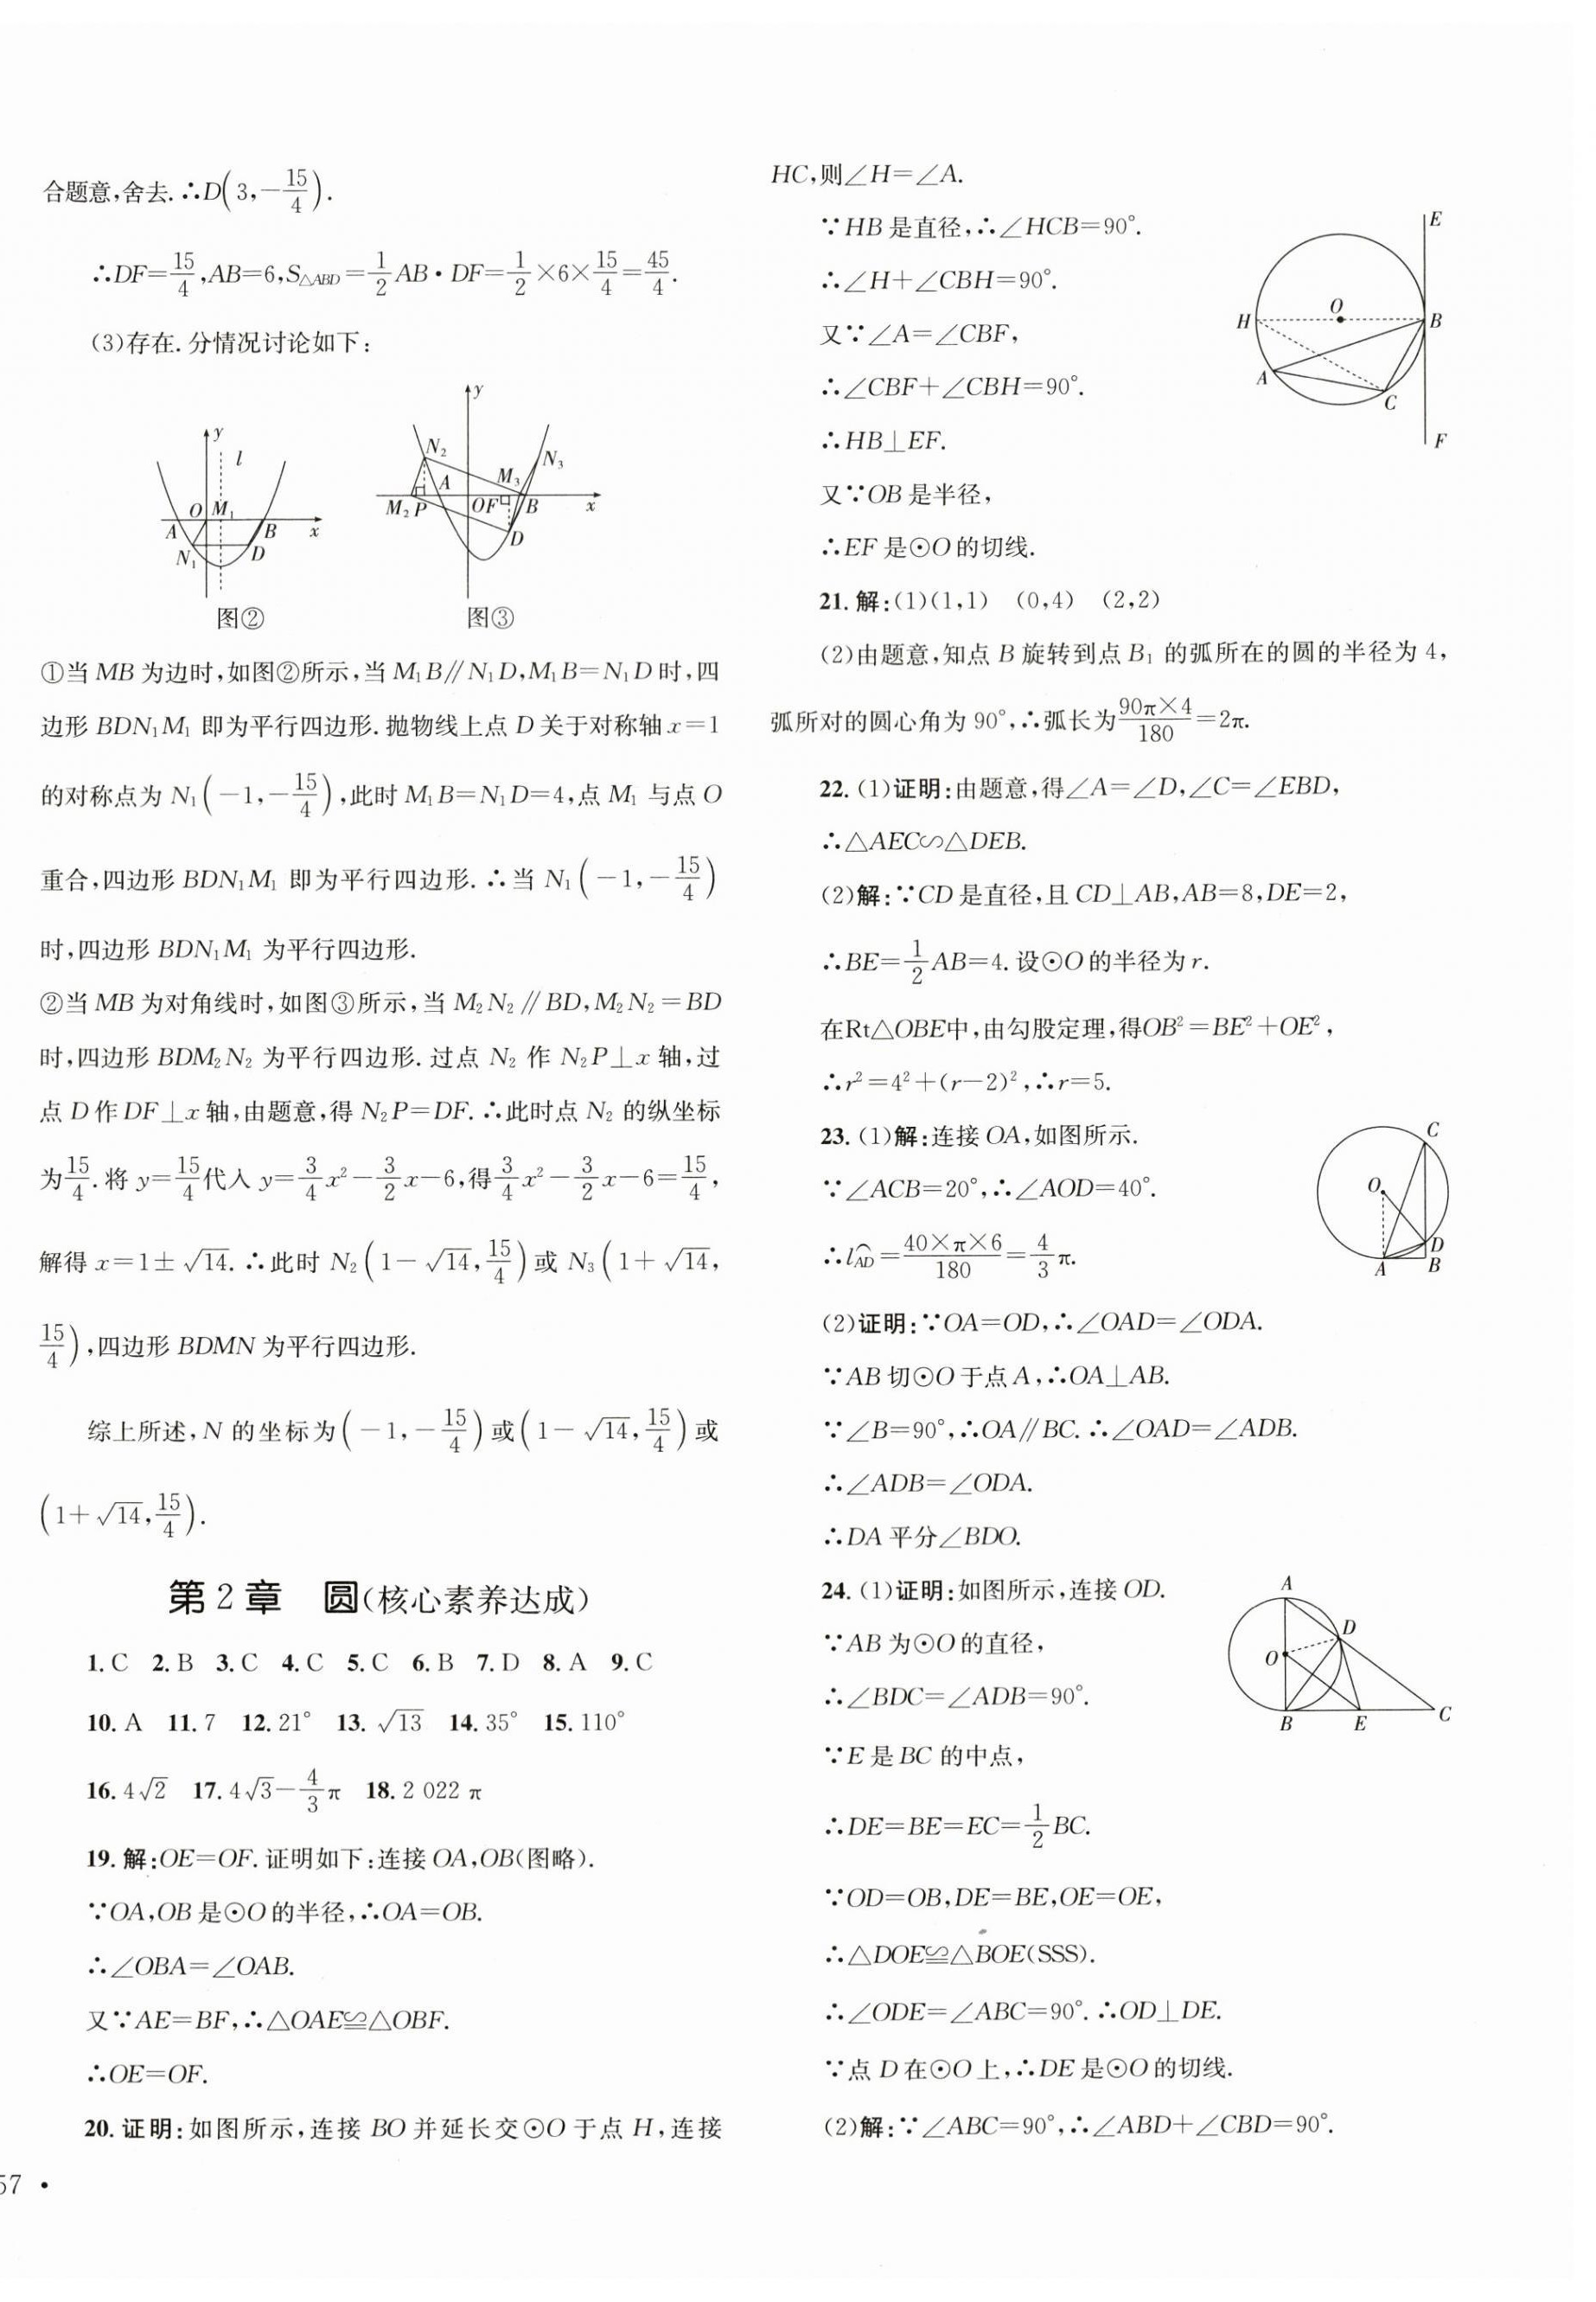 合题意,舍去.∴D(3,-15/4).
∴DF=15/4,AB=6,S△ABD=1/2AB·DF=1/2×6×15/4=45/4.
(3)存在.分情况讨论如下:
y
l
O M₁
A B x
N₁ D
图②
y
N₂ N₃
A M₃
M₂ P O F B x
D
图③
①当MB为边时,如图②所示,当M₁B∥N₁D,M₁B=N₁D时,四
边形BDN₁M₁即为平行四边形.抛物线上点D关于对称轴x=1
的对称点为N₁(-1,-15/4),此时M₁B=N₁D=4,点M₁与点O
重合,四边形BDN₁M₁即为平行四边形.∴当N₁(-1,-15/4)
时,四边形BDN₁M₁为平行四边形.
②当MB为对角线时,如图③所示,当M₂N₂∥BD,M₂N₂=BD
时,四边形BDM₂N₂为平行四边形.过点N₂作N₂P⊥x轴,过
点D作DF⊥x轴,由题意,得N₂P=DF.∴此时点N₂的纵坐标
为15/4.将y=15/4代入y=3/4x²-3/2x-6,得3/4x²-3/2x-6=15/4,
解得x=1±√14.∴此时N₂(1-√14,15/4)或N₃(1+√14,
15/4),四边形BDMN为平行四边形.
综上所述,N的坐标为(-1,-15/4)或(1-√14,15/4)或
(1+√14,15/4).
第2章 圆(核心素养达成)
1.C 2.B 3.C 4.C 5.C 6.B 7.D 8.A 9.C
10.A 11.7 12.21° 13.√13 14.35° 15.110°
16.4√2 17.4√3-4/3π 18.2 022 π
19.解:OE=OF.证明如下:连接OA,OB(图略).
∵OA,OB是⊙O的半径,∴OA=OB.
∴∠OBA=∠OAB.
又∵AE=BF,∴△OAE≌△OBF.
∴OE=OF.
20.证明:如图所示,连接BO并延长交⊙O于点H,连接
57 •
HC,则∠H=∠A.
∵HB是直径,∴∠HCB=90°.
∴∠H+∠CBH=90°.
又∵∠A=∠CBF,
∴∠CBF+∠CBH=90°.
∴HB⊥EF.
又∵OB是半径,
∴EF是⊙O的切线.
E
O
H B
A
C
F
21.解:(1)(1,1) (0,4) (2,2)
(2)由题意,知点B旋转到点B₁的弧所在的圆的半径为4,
弧所对的圆心角为90°,∴弧长为90π×4/180=2π.
22.(1)证明:由题意,得∠A=∠D,∠C=∠EBD,
∴△AEC∽△DEB.
(2)解:∵CD是直径,且CD⊥AB,AB=8,DE=2,
∴BE=1/2AB=4.设⊙O的半径为r.
在Rt△OBE中,由勾股定理,得OB²=BE²+OE²,
∴r²=4²+(r-2)²,∴r=5.
23.(1)解:连接OA,如图所示.
∵∠ACB=20°,∴∠AOD=40°.
∴l⌒AD=40×π×6/180=4/3π.
C
O
D
A B
(2)证明:∵OA=OD,∴∠OAD=∠ODA.
∵AB切⊙O于点A,∴OA⊥AB.
∵∠B=90°,∴OA∥BC.∴∠OAD=∠ADB.
∴∠ADB=∠ODA.
∴DA平分∠BDO.
24.(1)证明:如图所示,连接OD.
∵AB为⊙O的直径,
∴∠BDC=∠ADB=90°.
∵E是BC的中点,
∴DE=BE=EC=1/2BC.
∵OD=OB,DE=BE,OE=OE,
∴△DOE≌△BOE(SSS).
∴∠ODE=∠ABC=90°.∴OD⊥DE.
∵点D在⊙O上,∴DE是⊙O的切线.
A
D
O
B E C
(2)解:∵∠ABC=90°,∴∠ABD+∠CBD=90°.